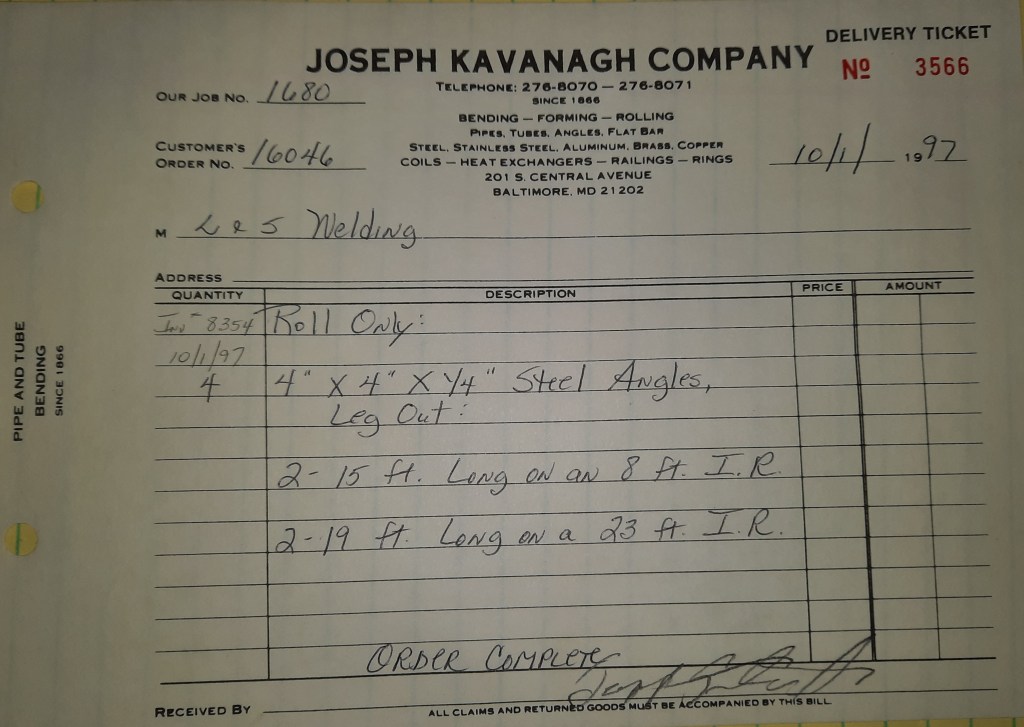 DELIVERY TICKET
JOSEPH KAVANAGH COMPANY
Nº 3566
TELEPHONE: 276-8070 — 276-8071
SINCE 1866
OUR JOB NO. 1680
BENDING — FORMING — ROLLING
PIPES, TUBES, ANGLES, FLAT BAR
CUSTOMER'S
ORDER NO. 16046
STEEL, STAINLESS STEEL, ALUMINUM, BRASS, COPPER
COILS — HEAT EXCHANGERS — RAILINGS — RINGS
201 S. CENTRAL AVENUE
BALTIMORE, MD 21202
10/1/ 1997
M L & S Welding
ADDRESS
QUANTITY DESCRIPTION PRICE AMOUNT
Inv# 8354 Roll Only:
10/1/97
4 4" X 4" X 1/4" Steel Angles,
Leg Out:
2- 15 ft. Long on an 8 ft. I.R.
2-19 ft. Long on a 23 ft. I.R.
ORDER COMPLETE
RECEIVED BY
ALL CLAIMS AND RETURNED GOODS MUST BE ACCOMPANIED BY THIS BILL
PIPE AND TUBE
BENDING
SINCE 1866